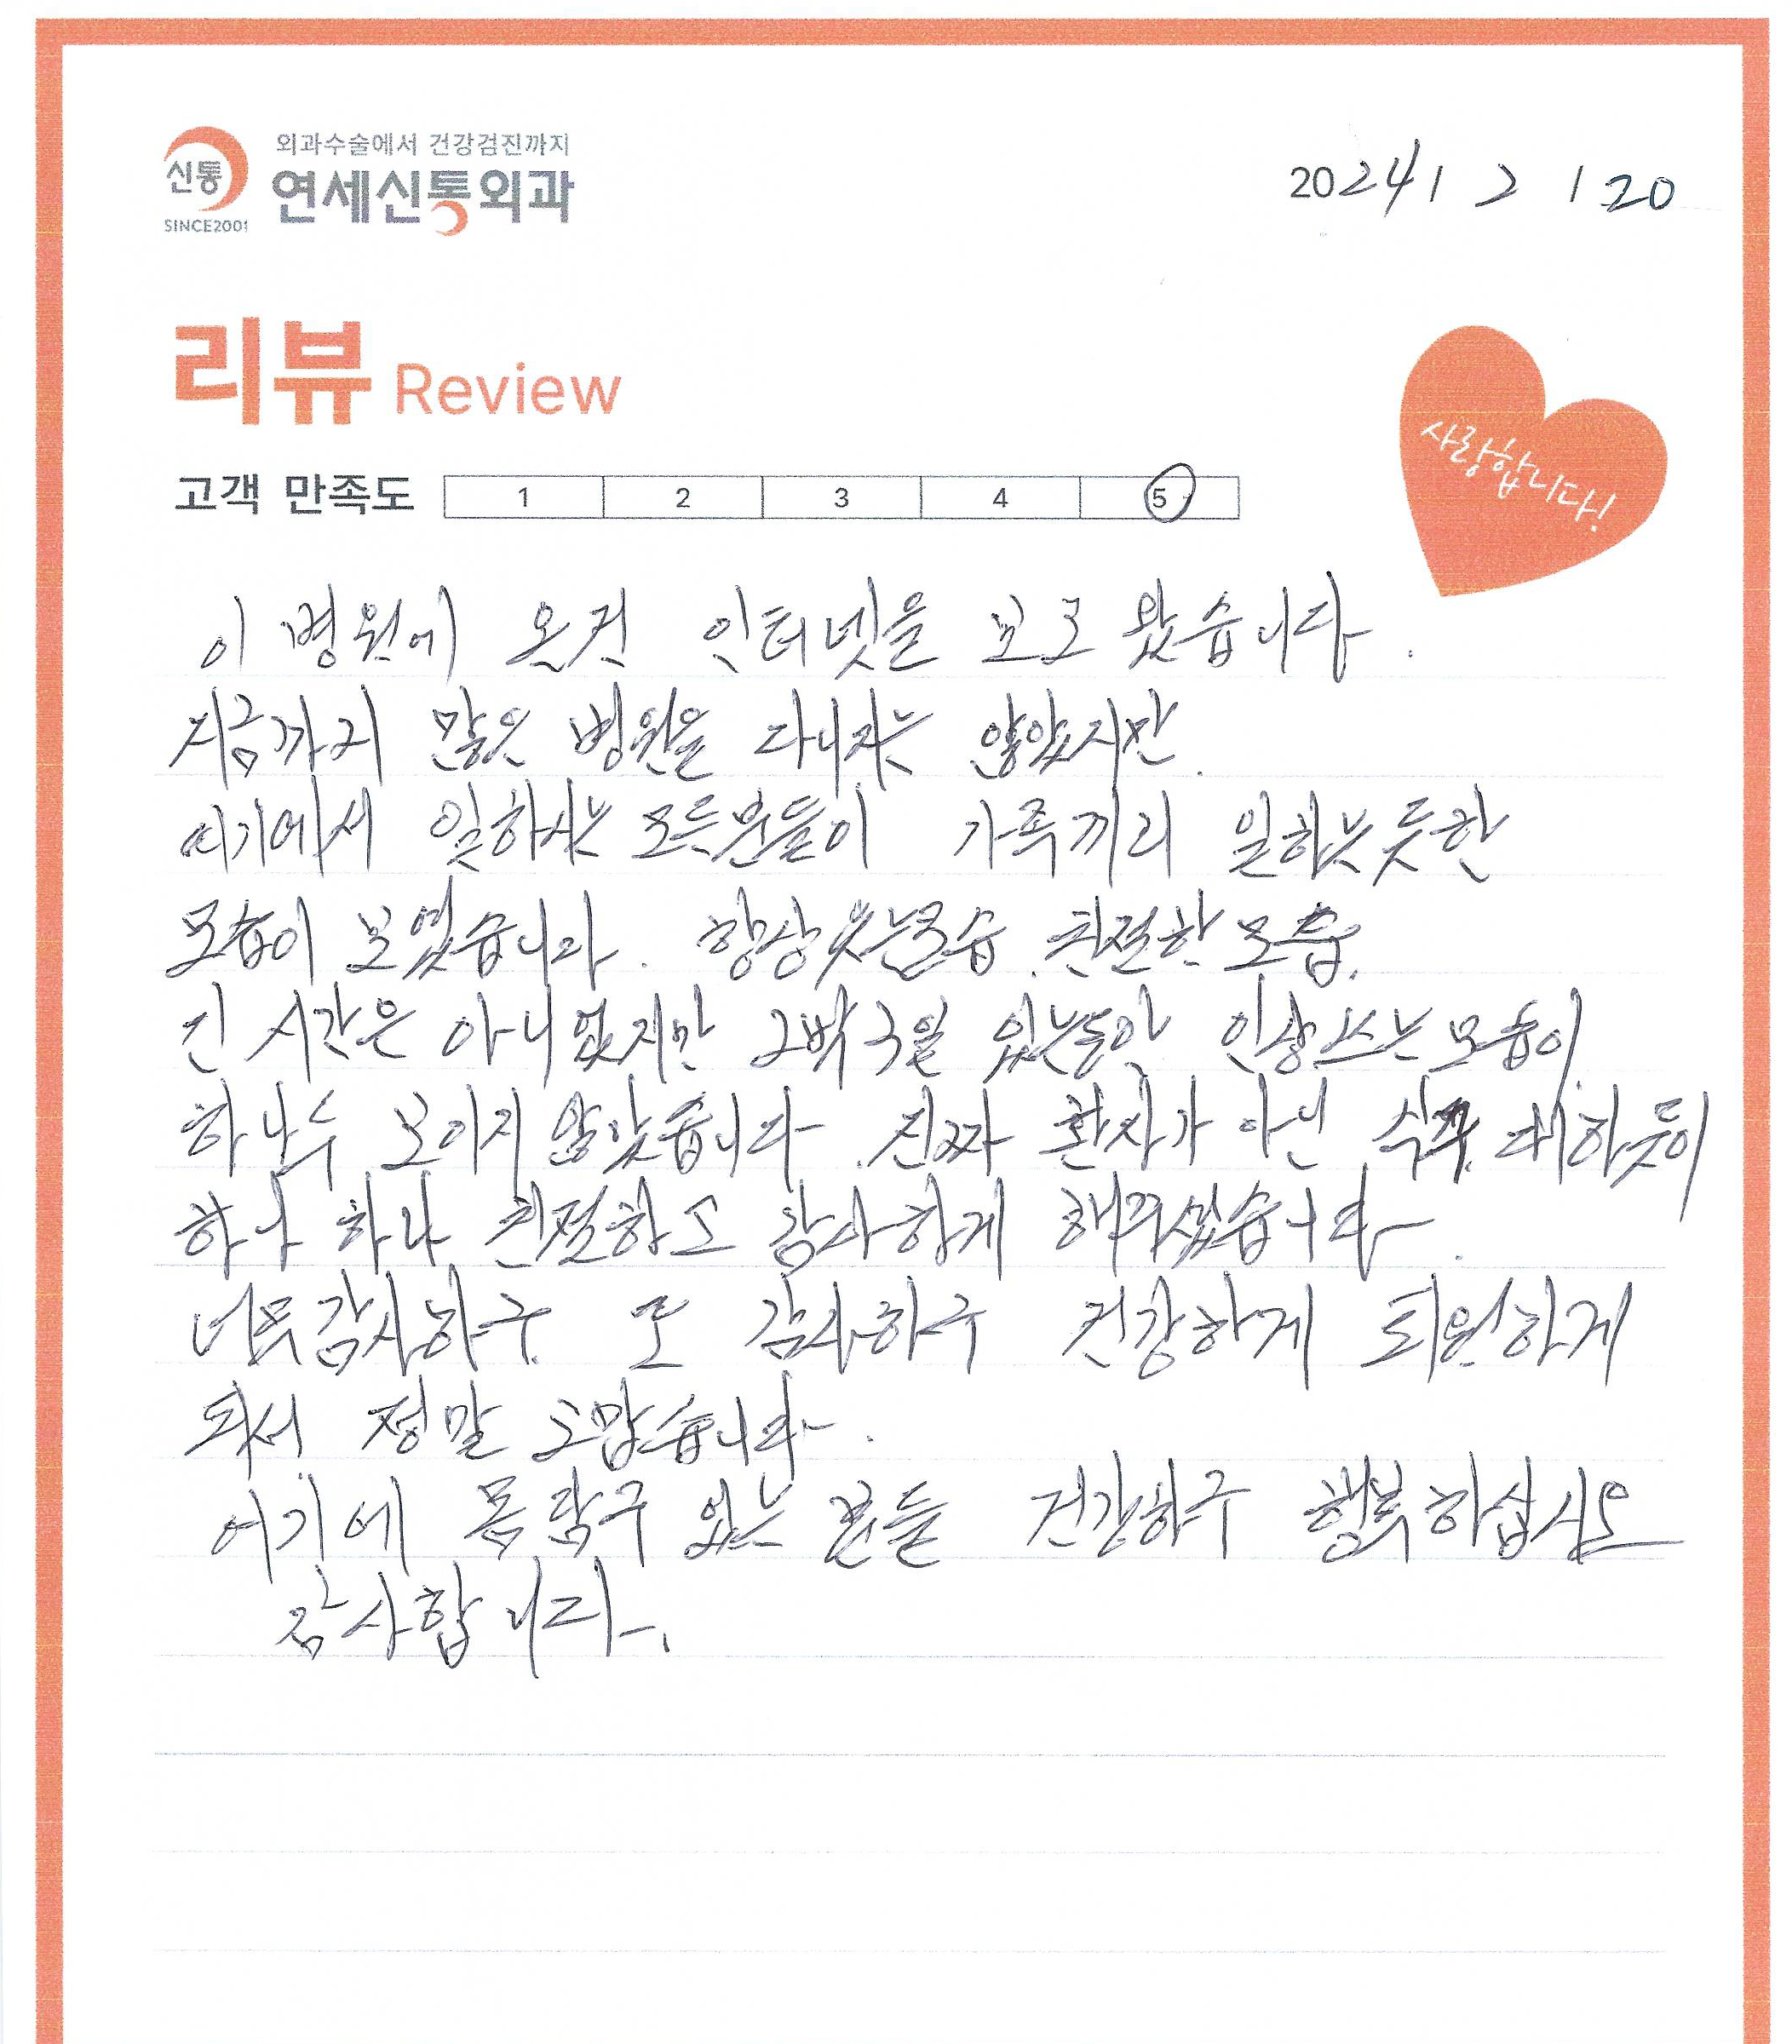 신통
SINCE2001
외과수술에서 건강검진까지
연세신통외과
2024 / 2 / 20
리뷰 Review
사랑합니다!
고객 만족도 1 2 3 4 5
이 병원에 온건 인터넷을 보고 왔습니다.
지금까지 많은 병원을 다니지는 않았지만
여기에서 일하시는 모든분들이 가족끼리 일하는 듯한
모습이 보였습니다. 항상 웃는모습 친절한 모습.
긴 시간은 아니었지만 2박 3일 있는동안 인상쓰는 모습이
하나두 보이지 않았습니다. 진짜 환자가 아닌 식구 대하듯이
하나 하나 친절하고 감사하게 해주셨습니다.
너무 감사하구 또 감사하구 건강하게 퇴원하게
되서 정말 고맙습니다.
여기에 몸담구 있는 분들 건강하구 행복하십시오
감사합니다.